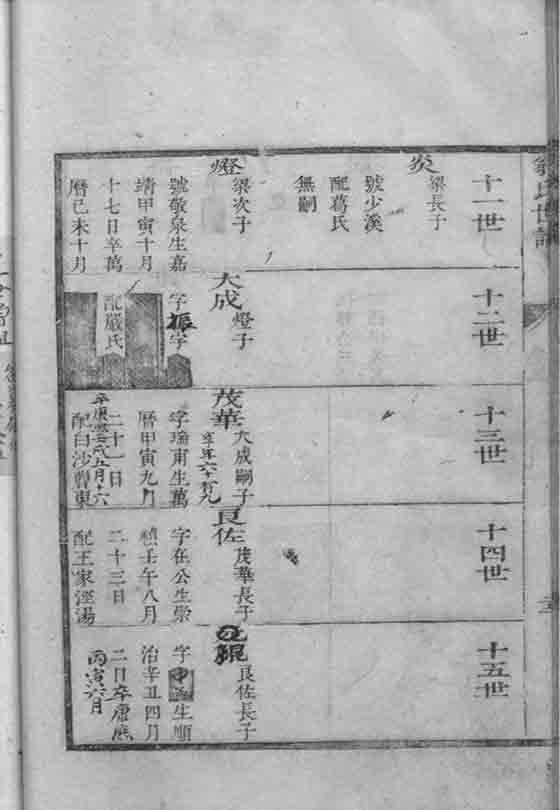 十一世
炎
梁長子
號少溪
配葛氏
無嗣
燈
梁次子
號敬泉生嘉
靖甲寅十月
十七日卒萬
曆己未十月
十二世
大成
燈子
字振宇
配嚴氏
十三世
茂華
大成嗣子
享年六十有九
字瑜甫生萬
曆甲寅九月
二十一日
卒康熙壬戌五月十六
配白沙曹東
十四世
良佐
茂華長子
字在公生崇
禎壬午八月
二十三日
配王家涇湯
十五世
良佐長子
生順
治辛丑四月
二日卒康熙
丙寅六月